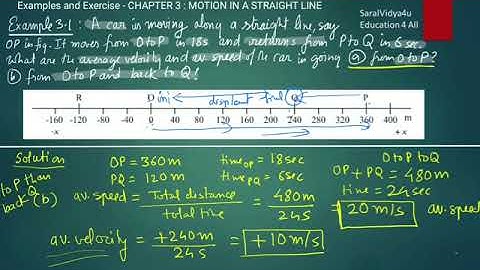 Examples and Exercise - CHAPTER 3 : MOTION IN A STRAIGHT LINE
SaralVidya4u
Education 4 All
Example 3.1 : A car is moving along a straight line, say
OP in fig. It moves from O to P in 18s and returns from P to Q in 6 sec.
What are the average velocity and av. speed of the car in going (a) from O to P?
(b) from O to P and back to Q?
R O ini displact final Q P
-160 -120 -80 -40 0 40 80 120 160 200 240 280 320 360 400 m
-x +x
Solution
OP = 360m
time OP = 18sec
O to P to Q
PQ = 120m
time PQ = 6sec
OP + PQ = 480m
time = 24sec
O to P then
back Q (b)
av. speed = Total distance / total time = 480m / 24s = 20 m/s av. speed
av. velocity = +240m / 24s = +10m/s